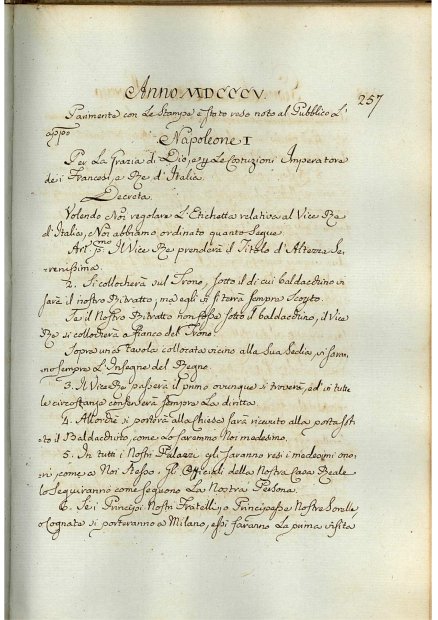 Anno MDCCCV.
257
Parimente con Le Stampe è stato reso noto al Pubblico L'
appo
Napoleone I
Per La Grazia di Dio, e p Le Costuzioni Imperatore
de i Francesi, e Re d'Italia.
Decreta.
Volendo Noi regolare L'Etichetta relativa al Vice Re
d'Italia, Noi abbiamo ordinato quanto Segue.
Art. P.mo Il Vice Re prenderà il Titolo d'Altezza Se-
renissima.
2. Si collocherà sul Trono, sotto il di cui baldacchino vi
sarà il nostro Ritratto, ma egli vi si terrà sempre Scoperto.
Se il Nostro Ritratto non fosse sotto il baldacchino, il Vice
Re si collocherà a fianco del Trono.
Sopra una Tavola collocata vicino alla Sua Sedia, vi saran-
no sempre L'Insegne del Regno.
3. Il Vice Re passerà il primo ovunque si troverà, ed in tutte
le circostanze conserverà sempre La diritta.
4. Allorchè si porterà alla chiesa sarà ricevuto alla porta sot-
to il Baldacchino, come Lo Saremmo Noi medesimo.
5. In tutti i Nostri Palazzi gli saranno resi i medesimi ono-
ri, come a Noi Stesso. Gli Officiali della Nostra Casa Reale
lo Seguiranno come seguono La Nostra Persona.
6. Se i Principi Nostri Fratelli, o Principesse Nostre Sorelle,
o Cognate si porteranno a Milano, essi faranno La prima visita